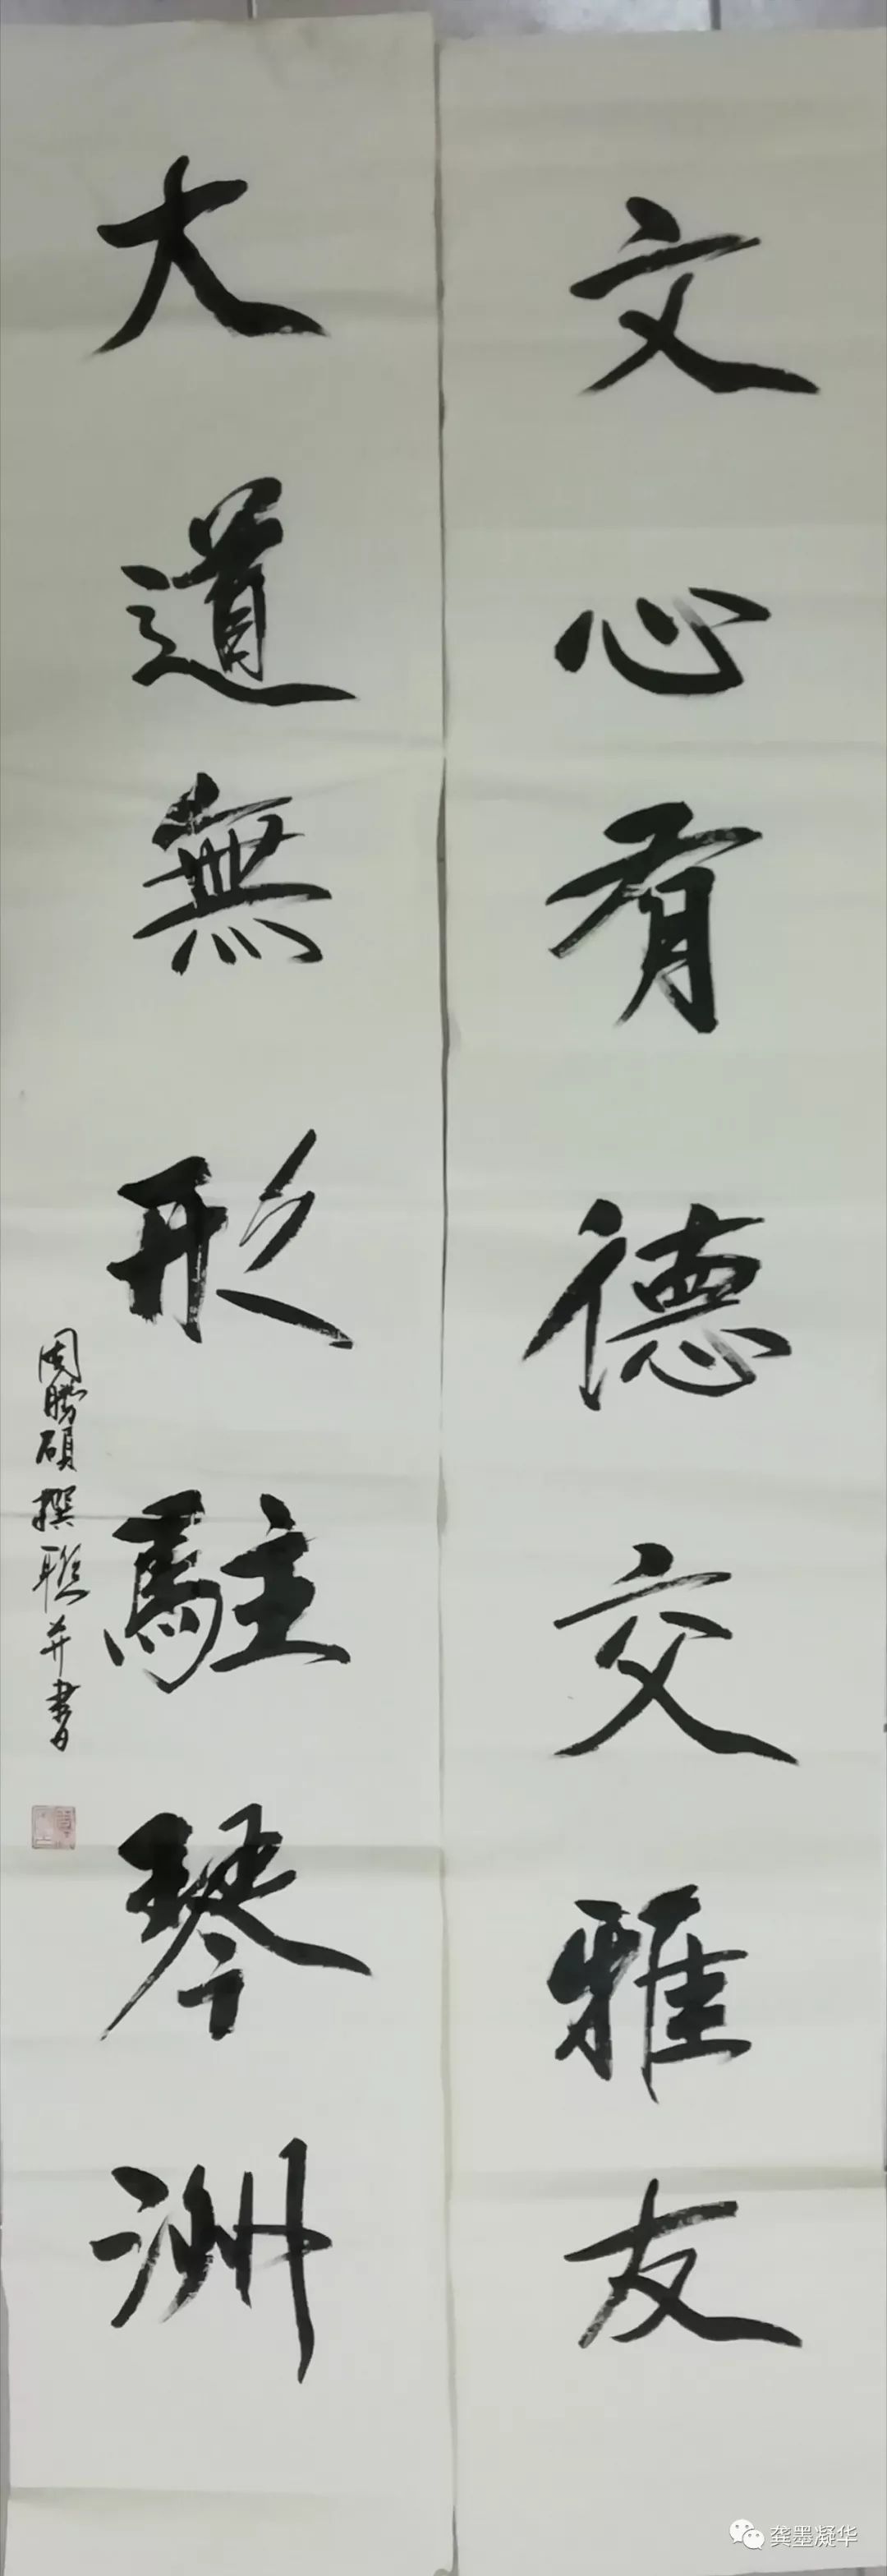 文心有德交雅友
大道無形駐琴洲
周騰碩撰聯并書
龚墨凝华